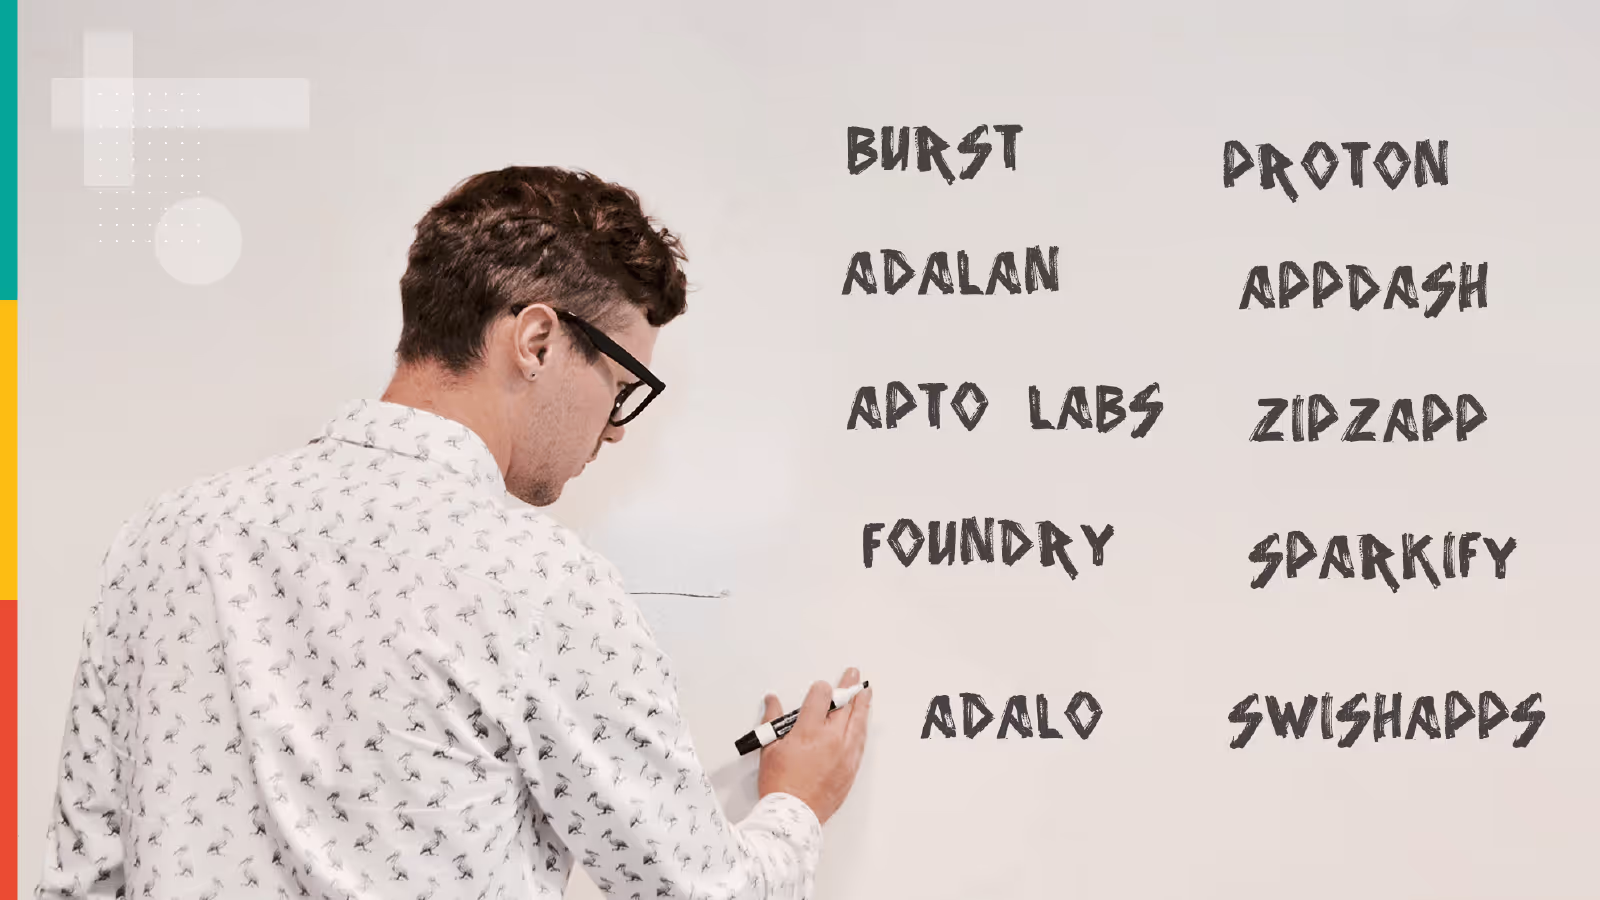 BURST
PROTON
ADALAN
APPDASH
APTO LABS
ZIPZAPP
FOUNDRY
SPARKIFY
ADALO
SWISHAPPS